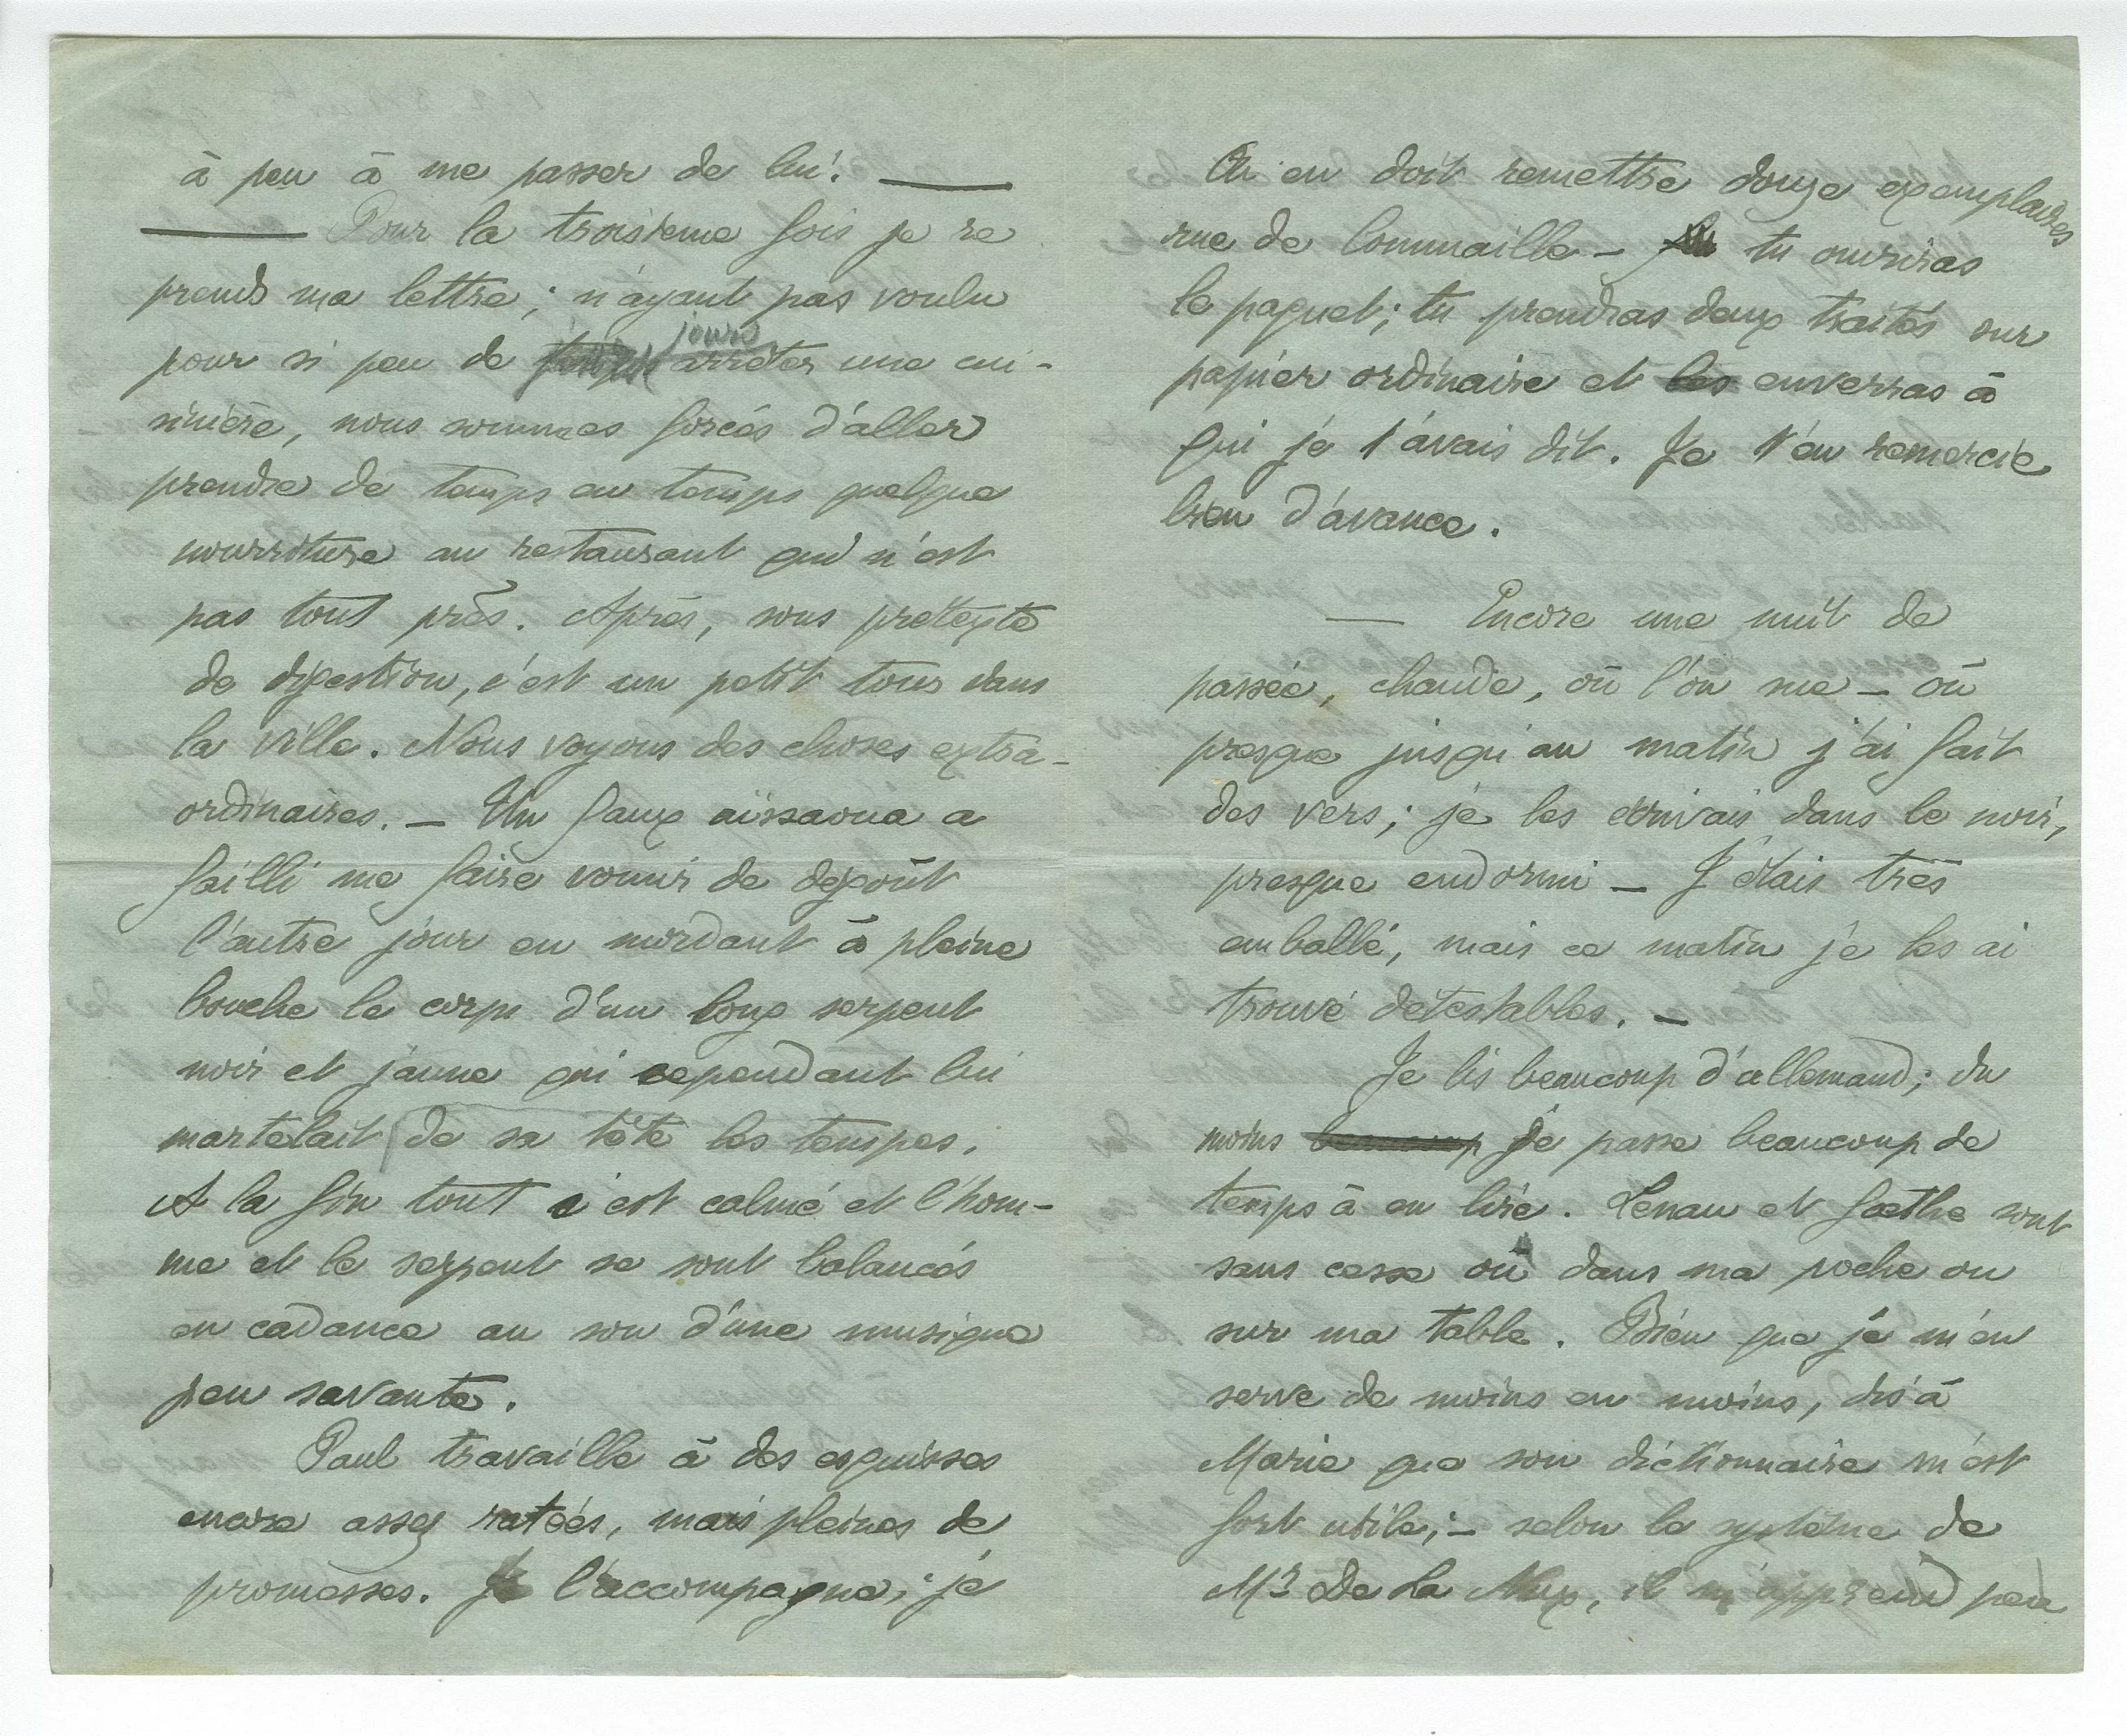 à peu à me passer de lui. ——
—— Pour la troisième fois je re
prends ma lettre ; n'ayant pas voulu
pour si peu de temps jours arrêter une cui-
sinière, nous sommes forcés d'aller
prendre de temps en temps quelque
nourriture au restaurant qui n'est
pas tout près. Après, sous prétexte
de digestion, c'est un petit tour dans
la ville. Nous voyons des choses extra-
ordinaires. — Un faux aïssaoua a
failli me faire vomir de dégoût
l'autre jour en mordant à pleine
bouche le corps d'un long serpent
noir et jaune qui cependant lui
martelait de sa tête les tempes.
A la fin tout s'est calmé et l'hom-
me et le serpent se sont balancés
en cadance au son d'une musique
peu savante.
Paul travaille à des esquisses
encore assez ratées, mais pleines de
promesses. Je l'accompagne ; je
On en doit remettre douze exemplaires
rue de Commaille — tu ouvriras
le paquet ; tu prendras deux traités sur
papier ordinaire et les enverras à
qui je t'avais dit. Je t'en remercie
bien d'avance.
— Encore une nuit de
passée, chaude, où l'on sue — où
presque jusqu'au matin j'ai fait
des vers ; je les écrivais dans le noir,
presque endormi — J'étais très
emballé, mais ce matin je les ai
trouvé détestables. —
Je lis beaucoup d'allemand ; du
moins beaucoup je passe beaucoup de
temps à en lire. Lenau et Goethe sont
sans cesse ou dans ma poche ou
sur ma table. Bien que je m'en
serve de moins en moins, dis à
Marie que son dictionnaire m'est
fort utile ; — selon le système de
Mr De La Nux, il m'apprend peu